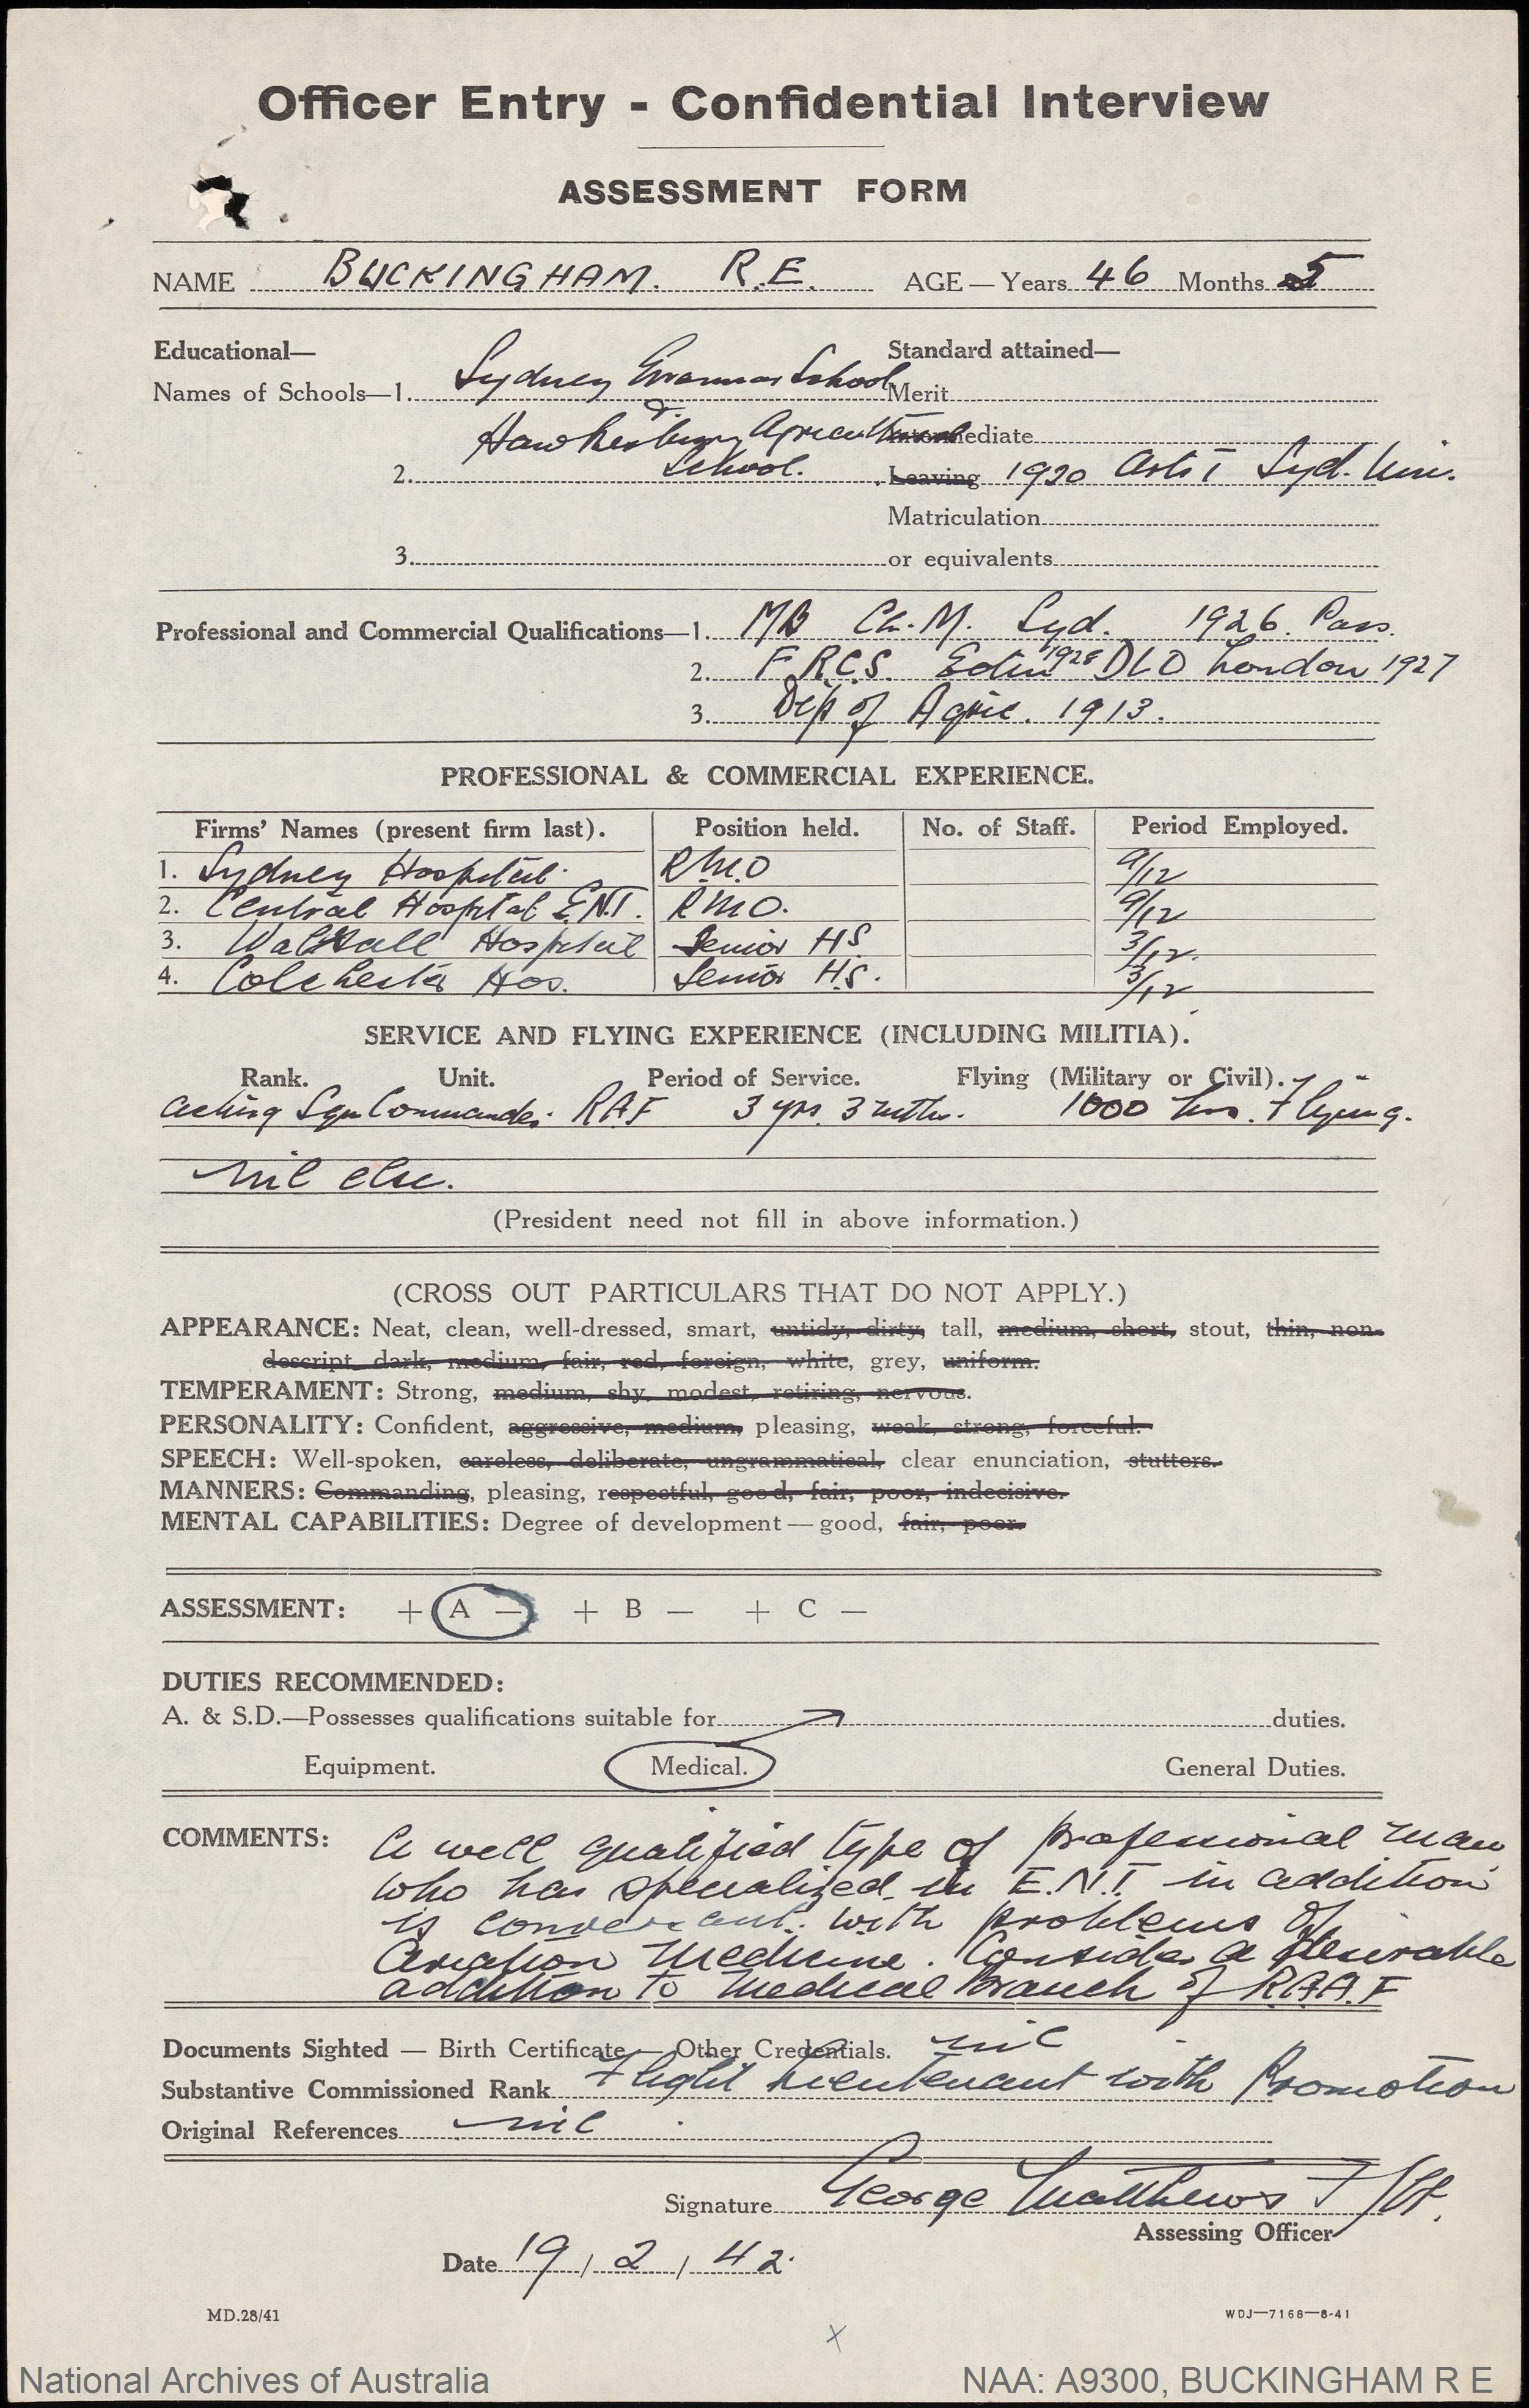 Officer Entry - Confidential Interview
ASSESSMENT FORM
NAME BUCKINGHAM. R.E. AGE — Years 46 Months 5
Educational— Standard attained—
Names of Schools—1. Sydney Grammar School Merit
& Hawkesbury Agricultural Intermediate
2. School. Leaving 1920 Arts I Syd. Uni.
Matriculation
3. or equivalents
Professional and Commercial Qualifications—1. MB Ch.M. Syd. 1926. Pass.
2. F.R.C.S. Edin 1928 DLO London 1927
3. Dip of Agric. 1913.
PROFESSIONAL & COMMERCIAL EXPERIENCE.
Firms' Names (present firm last). Position held. No. of Staff. Period Employed.
1. Sydney Hospital. R.M.O 9/12
2. Central Hospital E.N.T. RMO. 9/12
3. Walsall Hospital Senior HS 3/12.
4. Colchester Hos. Senior H.S. 3/12
SERVICE AND FLYING EXPERIENCE (INCLUDING MILITIA).
Rank. Unit. Period of Service. Flying (Military or Civil).
Acting Sqn Commander. RAF 3 yrs. 3 mths. 1000 hrs. Flying.
nil else.
(President need not fill in above information.)
(CROSS OUT PARTICULARS THAT DO NOT APPLY.)
APPEARANCE: Neat, clean, well-dressed, smart, untidy, dirty, tall, medium, short, stout, thin, non-
descript, dark, medium, fair, red, foreign, white, grey, uniform.
TEMPERAMENT: Strong, medium, shy, modest, retiring, nervous.
PERSONALITY: Confident, aggressive, medium, pleasing, weak, strong, forceful.
SPEECH: Well-spoken, careless, deliberate, ungrammatical, clear enunciation, stutters.
MANNERS: Commanding, pleasing, respectful, good, fair, poor, indecisive.
MENTAL CAPABILITIES: Degree of development — good, fair, poor.
ASSESSMENT: + A — + B — + C —
DUTIES RECOMMENDED:
A. & S.D.—Possesses qualifications suitable for duties.
Equipment. Medical. General Duties.
COMMENTS: A well qualified type of professional man
who has specialized in E.N.T in addition
is conversant with problems of
Aviation Medicine. Consider a desirable
addition to Medical Branch of R.A.A.F
Documents Sighted — Birth Certificate — Other Credentials. nil
Substantive Commissioned Rank Flight Lieutenant with Promotion
Original References nil
Signature George Matthews F/Lt.
Assessing Officer
Date 19 / 2 / 42.
MD.28/41 WDJ—7168—8-41
X
National Archives of Australia NAA: A9300, BUCKINGHAM R E